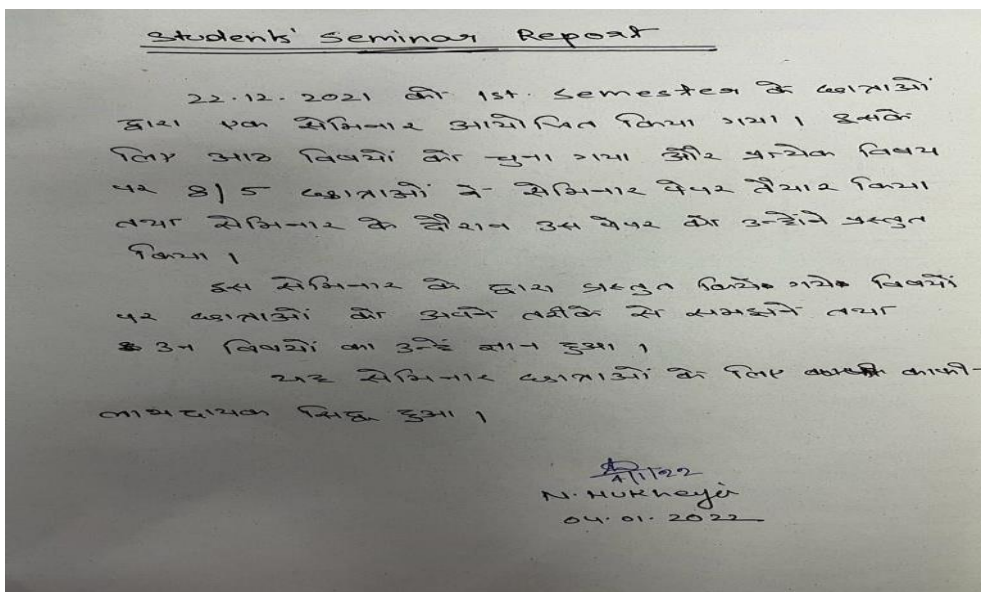 Students' Seminar Report
22.12.2021 को 1st. Semester के छात्राओं
द्वारा एक सेमिनार आयोजित किया गया। इसके
लिए आठ विषयों को चुना गया और प्रत्येक विषय
पर 8/5 छात्राओं ने सेमिनार पेपर तैयार किया
तथा सेमिनार के दौरान उस पेपर को उन्होंने प्रस्तुत
किया।
इस सेमिनार के द्वारा प्रस्तुत किये गये विषयों
पर छात्राओं को अपने तरीके से समझने तथा
उन विषयों का उन्हें ज्ञान हुआ।
यह सेमिनार छात्राओं के लिए काफी
लाभदायक सिद्ध हुआ।
4/1/22
N. Mukherjee
04.01.2022